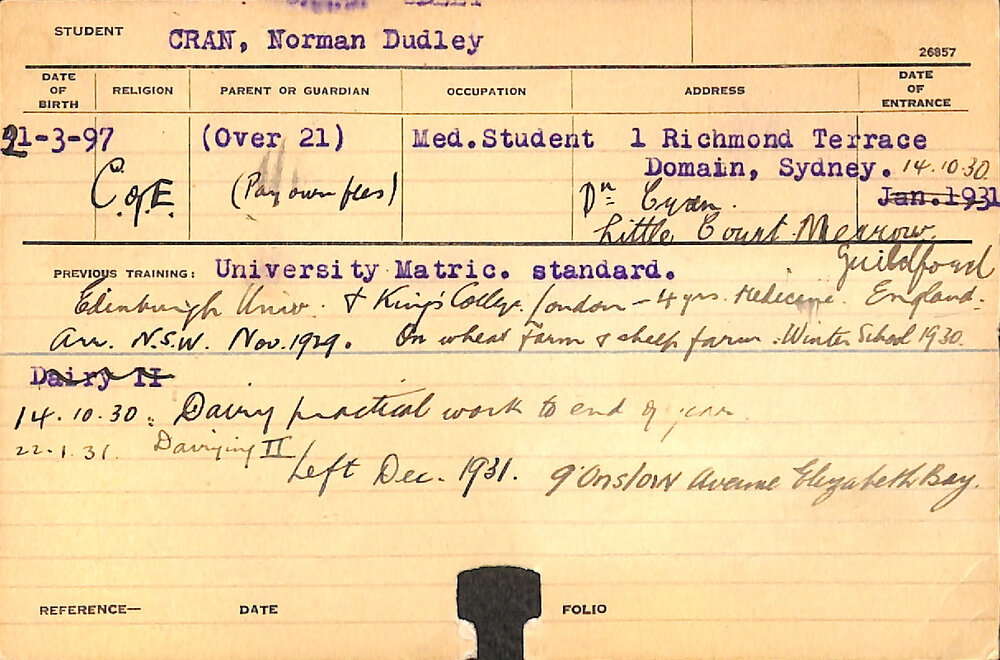 STUDENT CRAN, Norman Dudley
26857
DATE OF BIRTH RELIGION PARENT OR GUARDIAN OCCUPATION ADDRESS DATE OF ENTRANCE
21-3-97 (Over 21) Med.Student 1 Richmond Terrace
Domain, Sydney. 14.10.30
C.ofE. (Pay own fees) Jan.1931
Little Court Merrow.
Guildford
PREVIOUS TRAINING: University Matric. standard.
Edinburgh Univ. & King's College London - 4 yrs. Medicine. England.
Arr. N.S.W. Nov.1929. On wheat Farm & sheep farm. Winter School 1930.
Dairy II
14.10.30. Dairy practical work to end of year
22.1.31. Dairying II
Left Dec. 1931. 9 Onslow Avenue Elizabeth Bay.
REFERENCE— DATE FOLIO